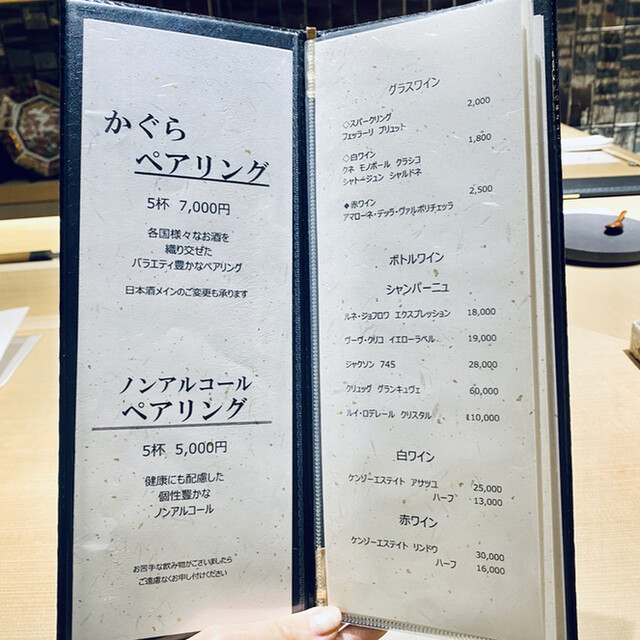 かぐら
ペアリング
5杯 7,000円
各国様々なお酒を
織り交ぜた
バラエティ豊かなペアリング
日本酒メインのご変更も承ります
ノンアルコール
ペアリング
5杯 5,000円
健康にも配慮した
個性豊かな
ノンアルコール
お苦手な飲み物がございましたら
ご遠慮なくお申し付けください
グラスワイン
◇スパークリング 2,000
フェッラーリ ブリュット
◇白ワイン 1,800
クネ モノポール クラシコ
シャトージュン シャルドネ
◆赤ワイン 2,500
アマローネ・デッラ・ヴァルポリチェッラ
ボトルワイン
シャンパーニュ
ルネ・ジョフロワ エクスプレッション 18,000
ヴーヴ・クリコ イエローラベル 19,000
ジャクソン 745 28,000
クリュッグ グランキュヴェ 60,000
ルイ・ロデレール クリスタル 110,000
白ワイン
ケンゾーエステイト アサツユ 25,000
ハーフ 13,000
赤ワイン
ケンゾーエステイト リンドウ 30,000
ハーフ 16,000